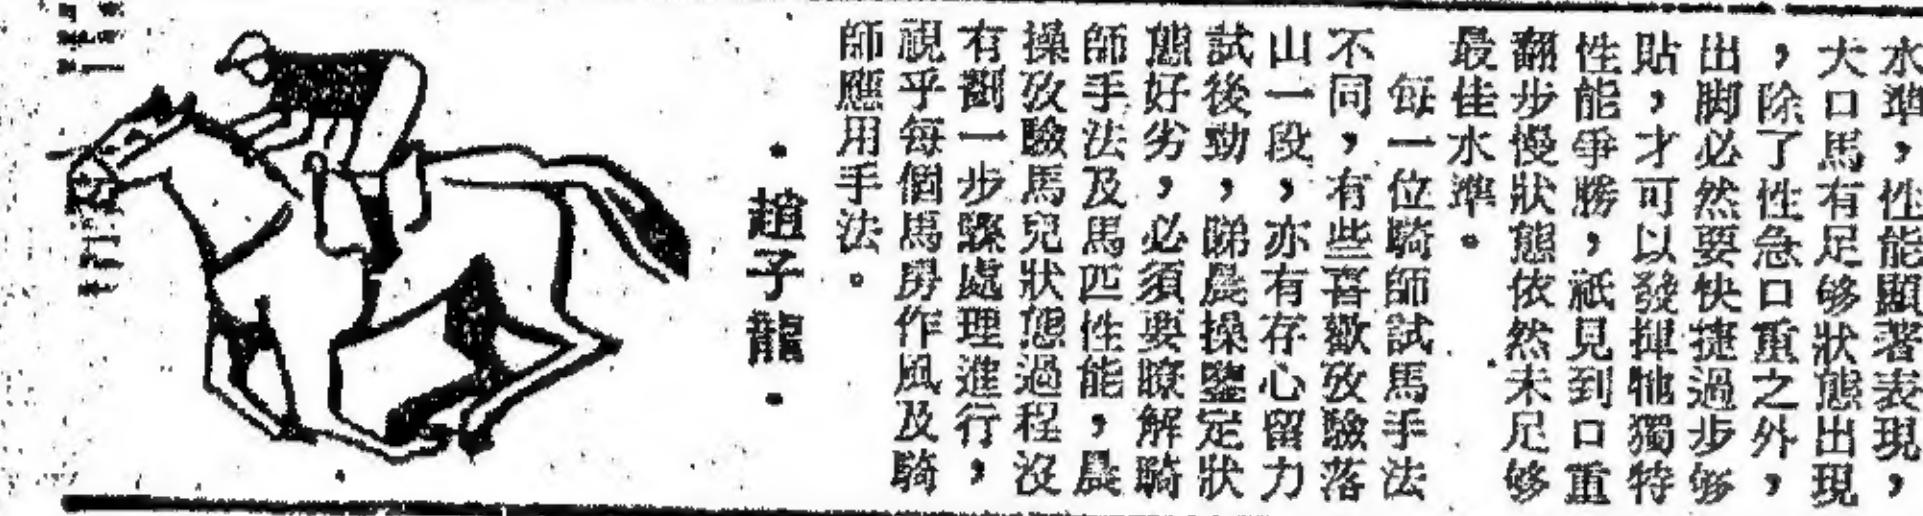 水準，性能顯著表現，
大口馬有足够狀態出現
，除了性急口重之外，
出脚必然要快捷過步够
貼，才可以發揮牠獨特
性能爭勝，祇見到口重
翻步慢狀態依然未足够
最佳水準。
每一位騎師試馬手法
不同，有些喜歡攷驗落
山一段，亦有存心留力
試後勁，睇晨操鑒定狀
態好劣，必須要瞭解騎
師手法及馬匹性能，晨
操攷驗馬兒狀態過程沒
有劃一步驟處理進行，
視乎每個馬房作風及騎
師應用手法。
·趙子龍·